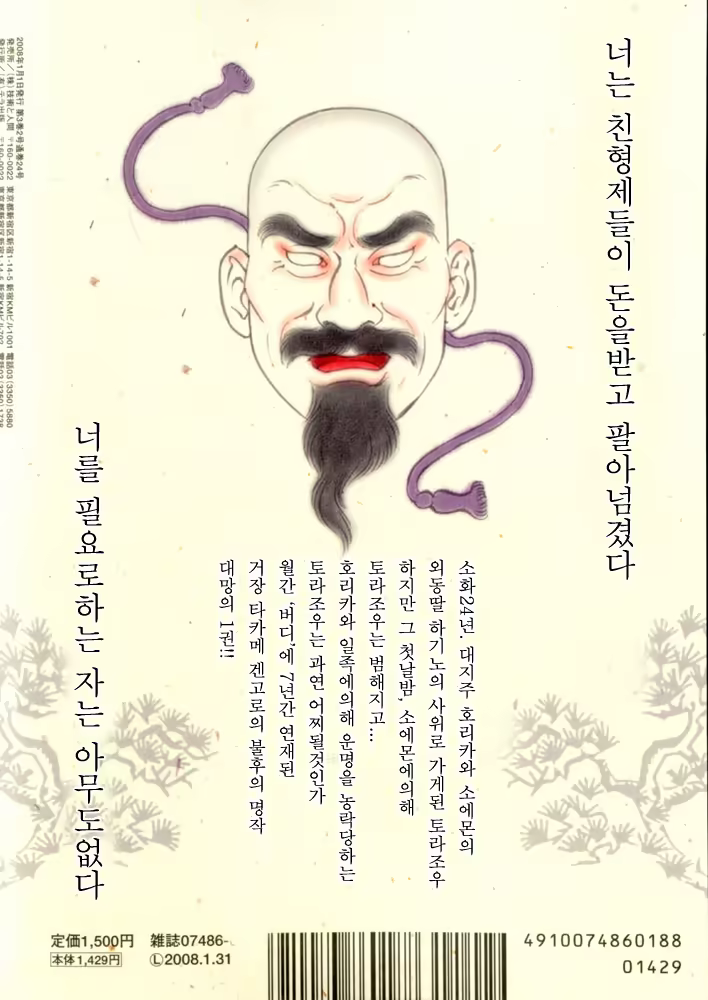 너는 친형제들이 돈을받고 팔아넘겼다
소화24년. 대지주 호리카와 소에몬의
외동딸 하기노의 사위로 가게된 토라조우
하지만 그 첫날밤, 소에몬에의해
토라조우는 범해지고...
호리카와 일족에의해 운명을 농락당하는
토라조우는 과연 어찌될것인가
월간 '버디'에 7년간 연재된
거장 타카메 겐고로의 불후의 명작
대망의 1권!!
너를 필요로하는 자는 아무도없다
2008年1月1日発行 第3巻2号通巻24号
発売所／(株)技術と人間 〒160-0022 東京都新宿区新宿1-14-5 新宿KMビル1001 電話03(3350)5880
定価1,500円 雑誌07486-
本体1,429円 Ⓛ2008.1.31
4910074860188
01429